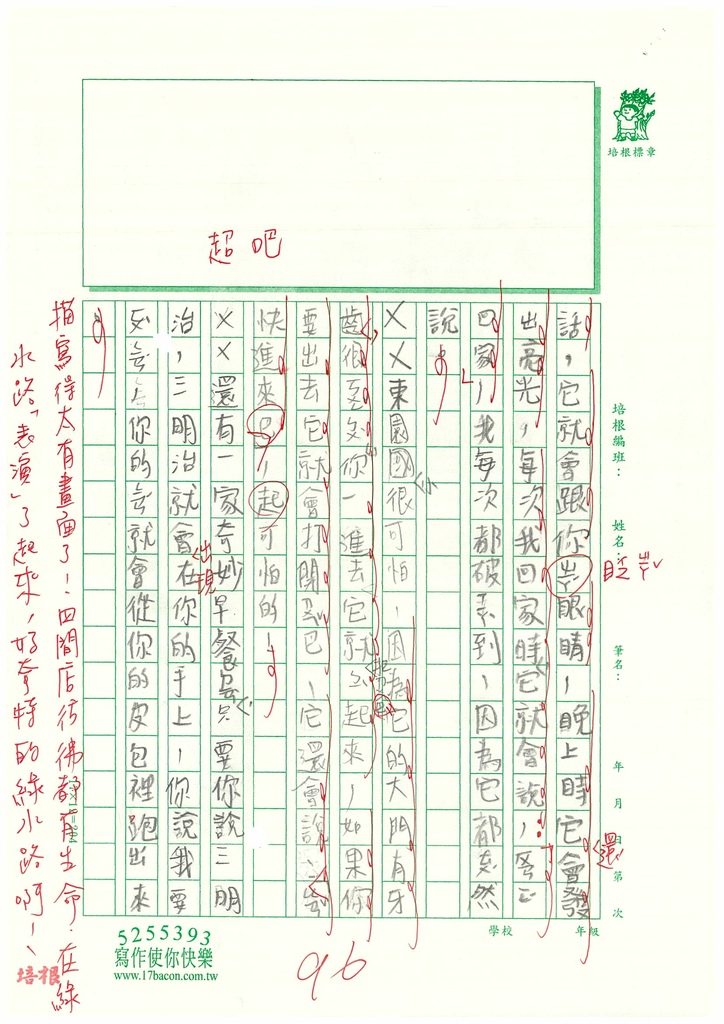 培根標章
培根編班：
姓名：
筆名：
年 月 日第 次
學校 年級
超吧
話，它就會跟你眨眼睛，晚上時它會發
還
眨
出亮光，每次我回家時它就會說，
回家，我每次都被 到，因為它都突然
說
ㄨㄨ東園國很可怕，因為它的大門有牙
齒很 你一進去它就 起來，如果你
要出去它就會打開 巴，它還會說
快進來吧，起可怕的
ㄨㄨ還有一家奇妙早餐 只要你說三明
治，三明治就會在你的手上，你說我要
出現
你的 就會從你的皮包裡跑出來
描寫得太有畫面了！四間店彷彿都有生命，在綠
水路「表演」了起來，好奇特的綠水路啊！
培根
96
5255393
寫作使你快樂
www.17bacon.com.tw